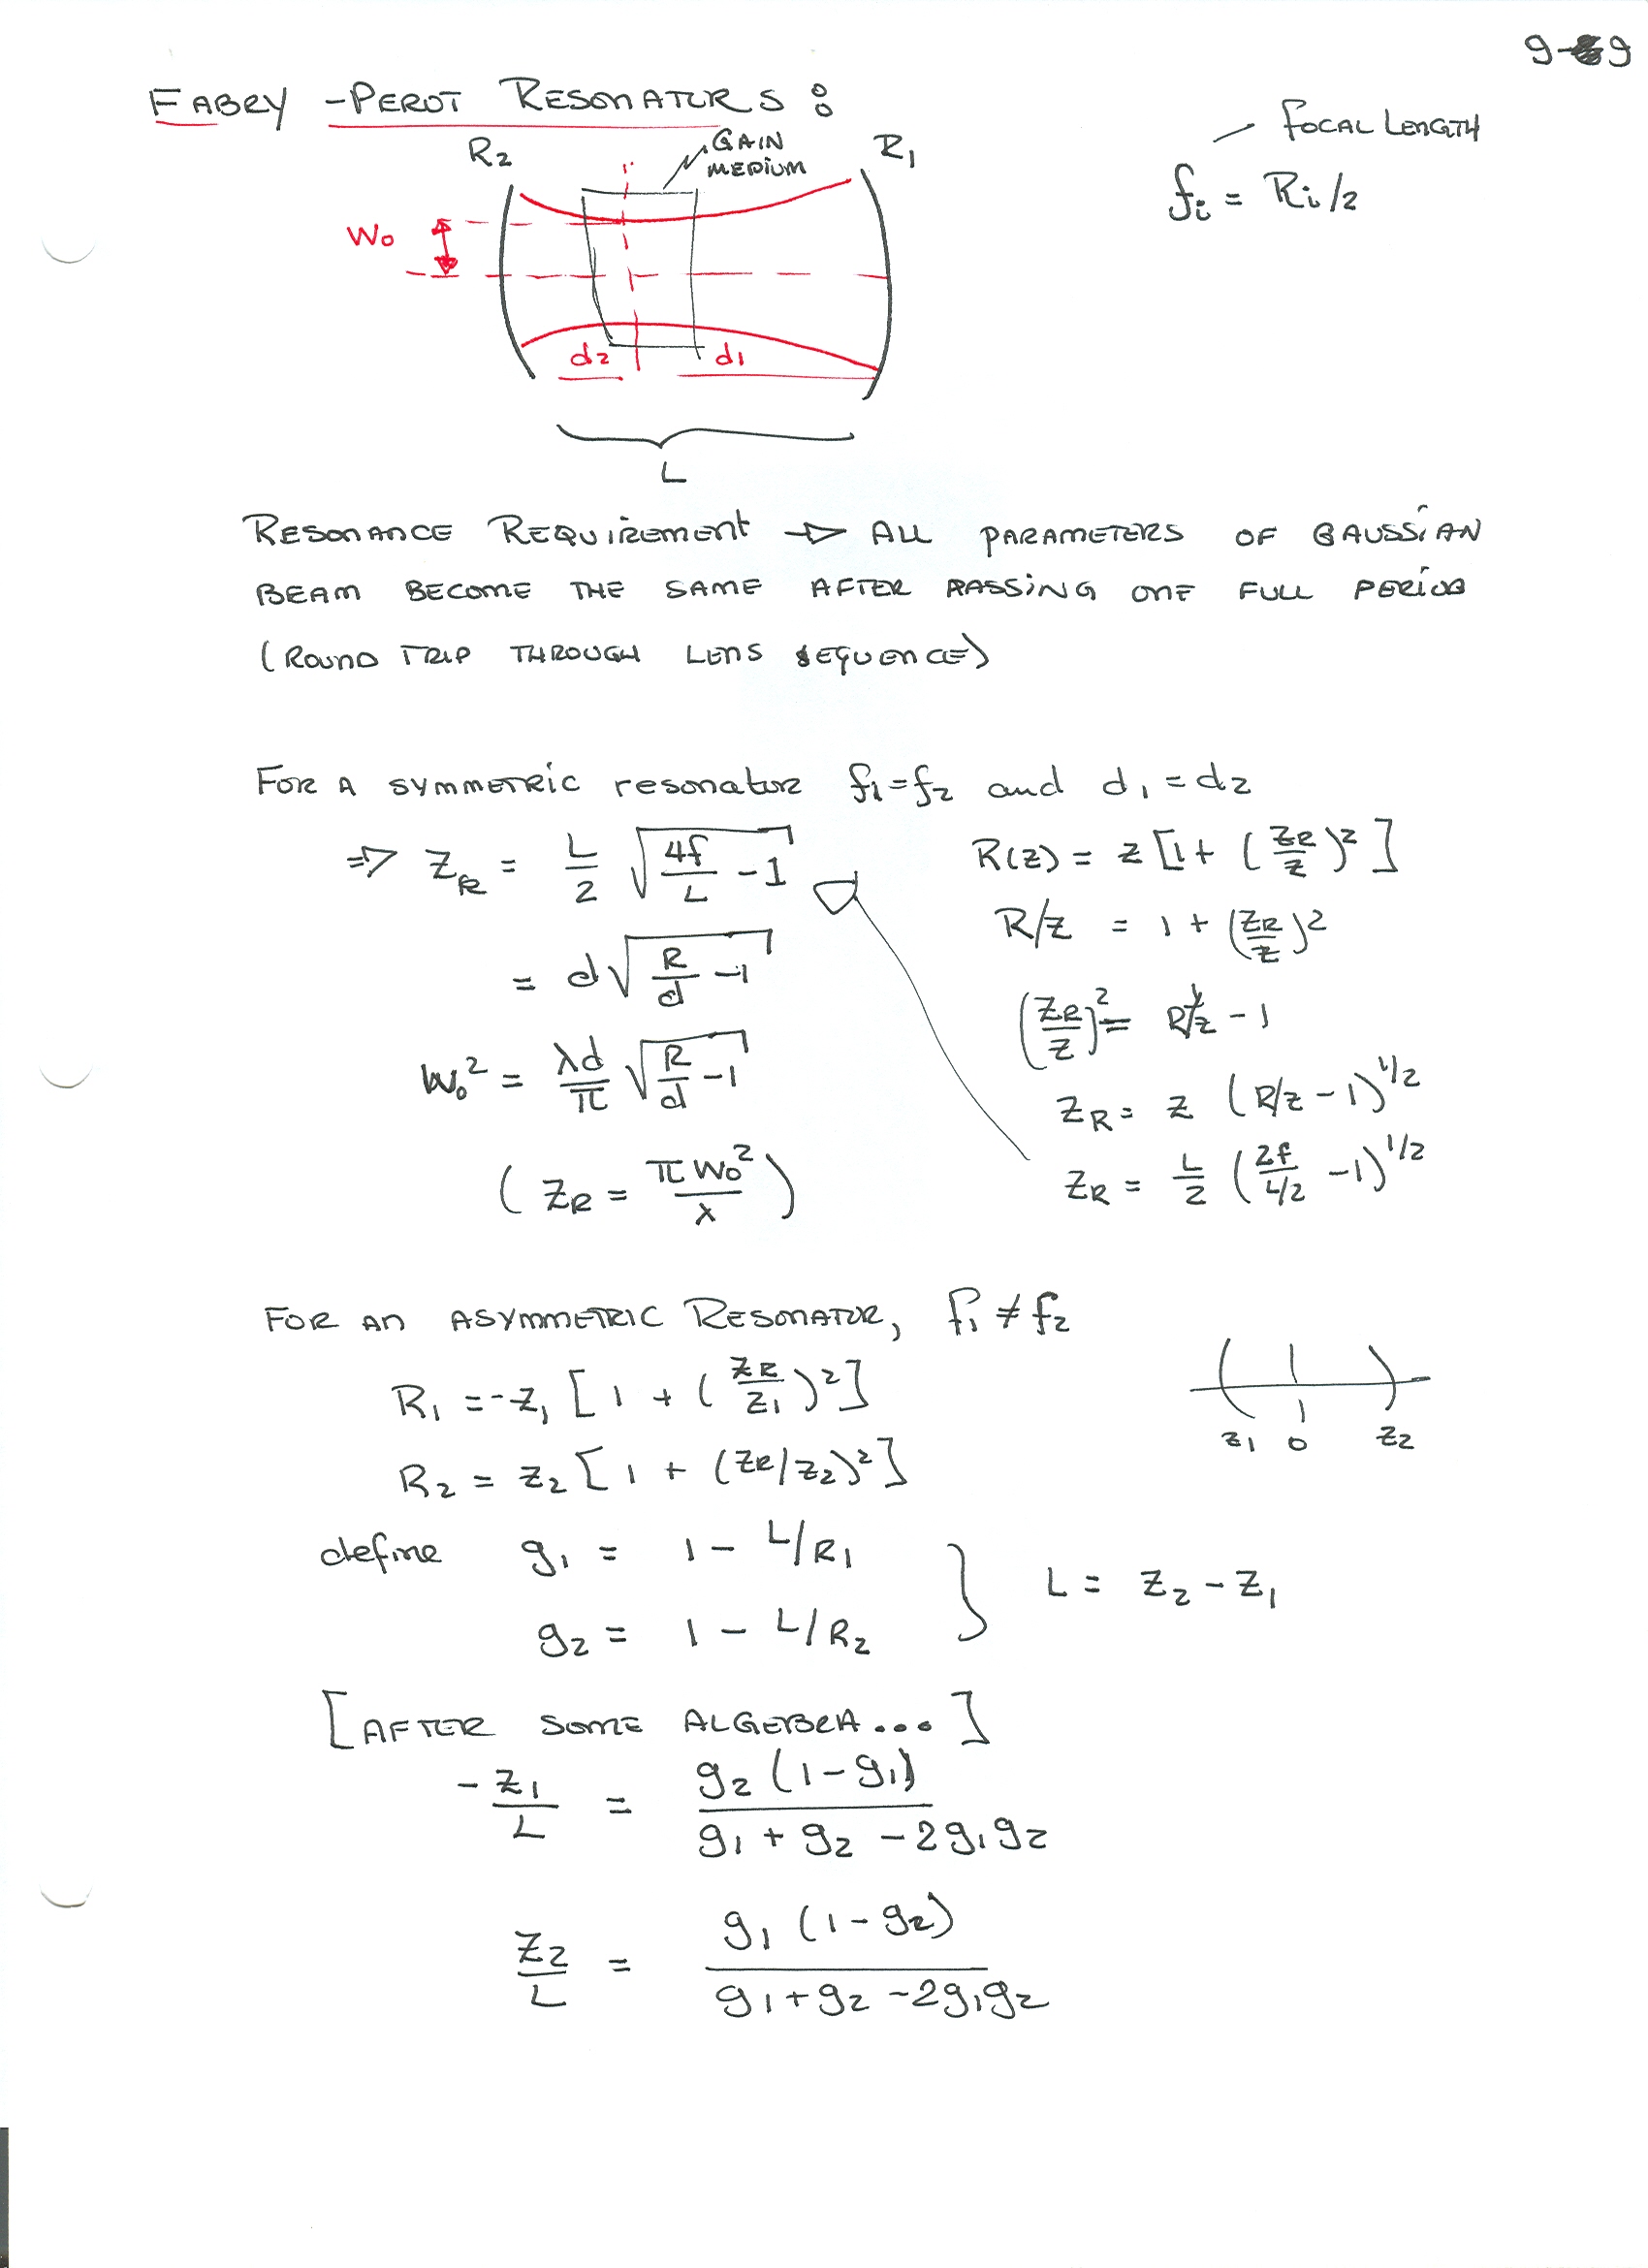 9-9
FABRY-PEROT RESONATORS:
FOCAL LENGTH
fi = Ri/2
R2
GAIN MEDIUM
R1
W0
d2
d1
L
RESONANCE REQUIREMENT → ALL PARAMETERS OF GAUSSIAN
BEAM BECOME THE SAME AFTER PASSING ONE FULL PERIOD
(ROUND TRIP THROUGH LENS SEQUENCE)
FOR A SYMMETRIC resonator f1=f2 and d1=d2
⇒ ZR = L/2 √(4f/L - 1)
= d√(R/d - 1)
W0² = λd/π √(R/d - 1)
(ZR = πW0²/λ)
R(z) = z [1 + (ZR/z)²]
R/z = 1 + (ZR/z)²
(ZR/z)² = R/z - 1
ZR = z (R/z - 1)^1/2
ZR = L/2 (2f/L/2 - 1)^1/2
FOR AN ASYMMETRIC RESONATOR, f1 ≠ f2
R1 = -z1 [1 + (ZR/z1)²]
R2 = z2 [1 + (ZR/z2)²]
z1 0 z2
define g1 = 1 - L/R1
g2 = 1 - L/R2
} L = z2 - z1
[AFTER SOME ALGEBRA...]
-z1/L = g2(1-g1)/g1 + g2 - 2g1g2
z2/L = g1(1-g2)/g1 + g2 - 2g1g2